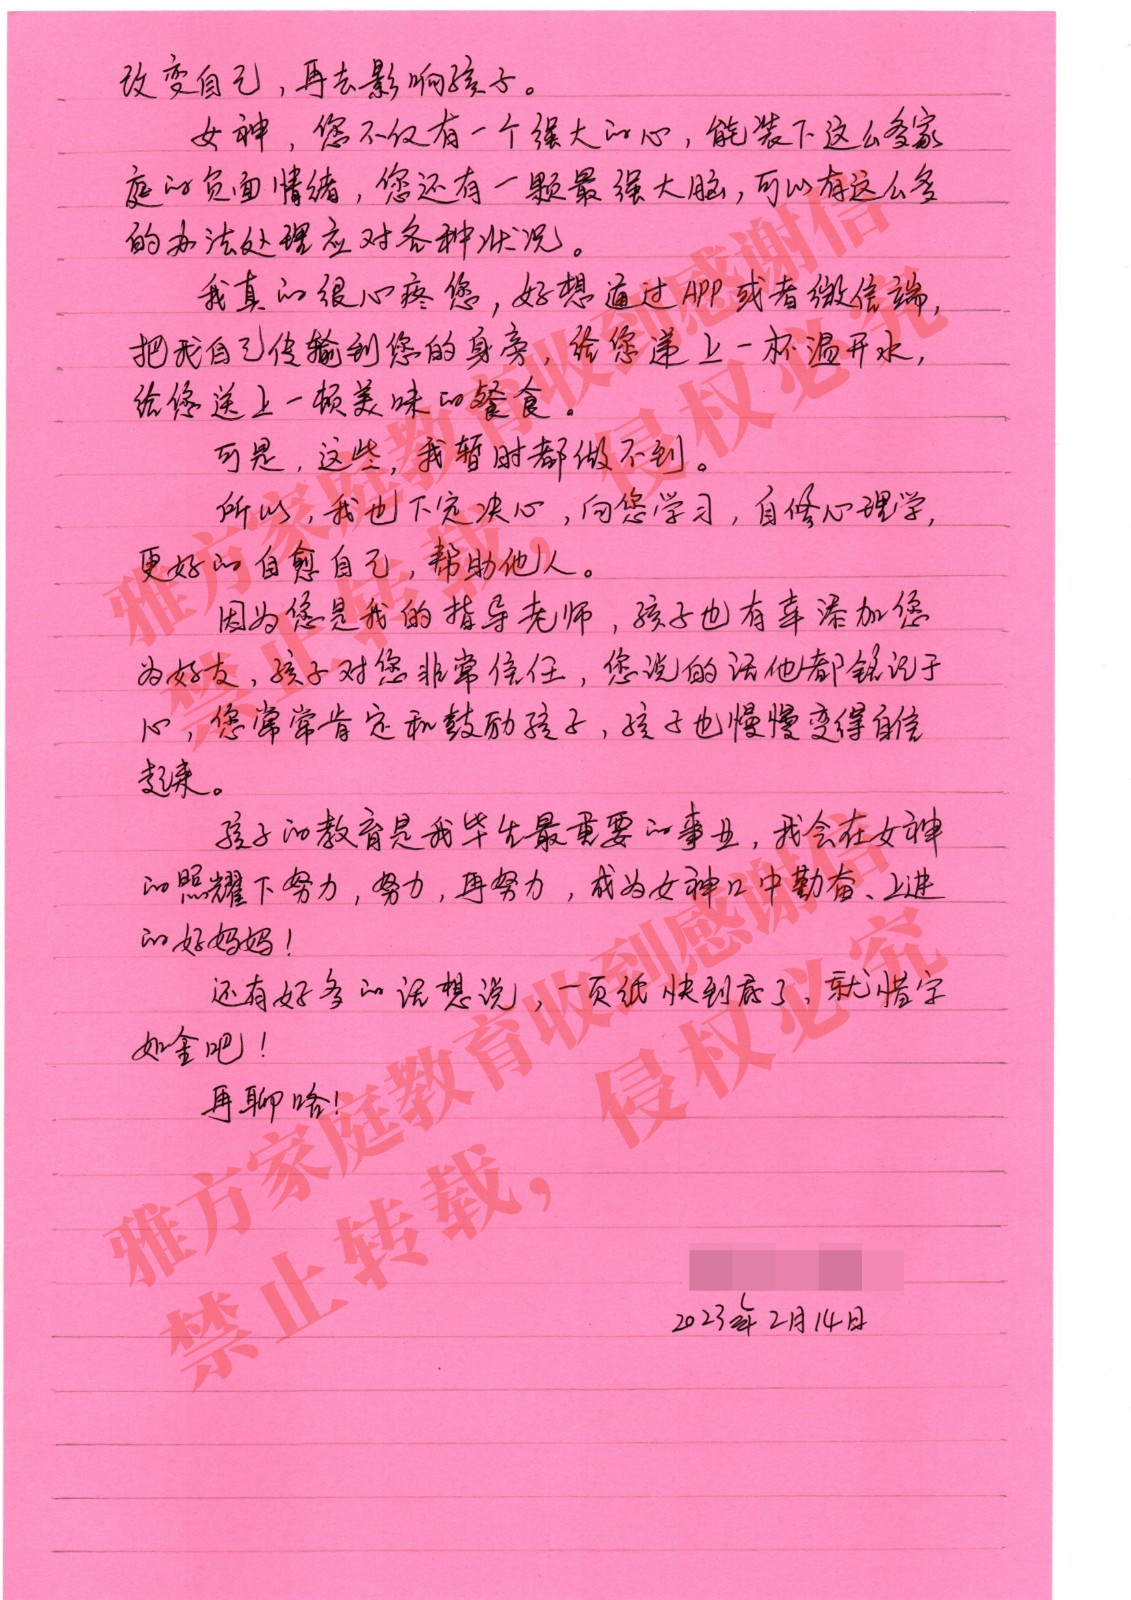 改变自己，再去影响孩子。
女神，您不仅有一个强大的心，能装下这么多家
庭的负面情绪，您还有一颗最强大脑，可以有这么多
的办法处理应对各种状况。
我真的很心疼您，好想通过APP或者微信端，
把我自己传输到您的身旁，给您递上一杯温开水，
给您送上一顿美味的餐食。
可是，这些，我暂时都做不到。
所以，我也下定决心，向您学习，自修心理学，
更好的自愈自己，帮助他人。
因为您是我的指导老师，孩子也有幸添加您
为好友，孩子对您非常信任，您说的话他都铭记于
心，您常常肯定和鼓励孩子，孩子也慢慢变得自信
起来。
孩子的教育是我毕生最重要的事业，我会在女神
的照耀下努力，努力，再努力，成为女神口中勤奋、上进
的好妈妈！
还有好多的话想说，一页纸快到底了，就惜字
如金吧！
再聊咯！
2023年2月14日
雅方家庭教育收到感谢信
禁止转载，侵权必究
雅方家庭教育收到感谢信
禁止转载，侵权必究